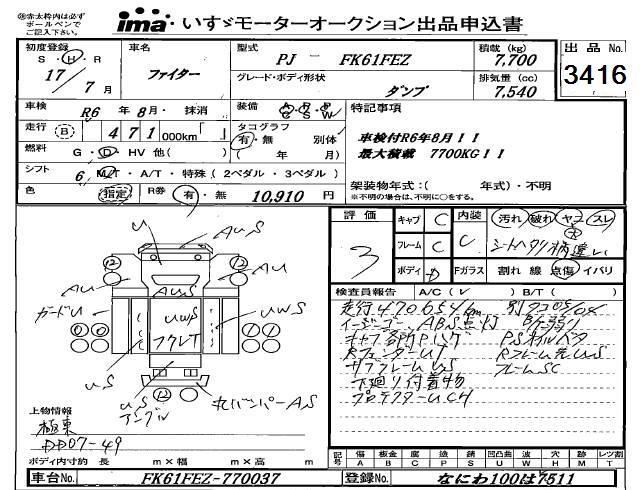 ※赤太枠内は必ず
ボールペンで
ご記入下さい。
ima いすゞモーターオークション出品申込書
初度登録
S・H・R
17/7月
車名
ファイター
型式
PJ － FK61FEZ
積載 (kg)
7,700
グレード・ボディ形状
ダンプ
排気量 (cc)
7,540
出品No.
3416
車検
R6 年 8月・ 抹消
装備
特記事項
走行 B 471 000km「 」
タコグラフ
有・無 別体
( 年 月)
車検付R6年8月！！
最大積載 7700KG！！
燃料
G・D・HV 他( )
シフト
6 M/T・A/T・特殊 (2ペダル・3ペダル)
架装物年式：( 年式)・不明
※不明の場合は、不明に○をする。
色
指定
R券
有・無
10,910 円
評価
3
キャブ C
フレーム C
ボディ D
内装 C
汚れ 破れ ヤコ スレ
シートヘタリ 柄違い
Fガラス
割れ 線 点傷 イバリ
検査員報告 A/C( ) B/T( )
走行470654km
イージーゴー ABS点灯
サブフレームUS
フレームSC
下廻り付着物
U
AUS
AU
AU
AUS
ガードU
UWS
フクレT
UWS
US
US
アングル
上物情報
極東
DD07-49
ボディ内寸約 長 m×幅 m×高 m
記号
傷 A
板金 B
腐 C
塗 P
錆 S
凹凸曲 U
波 W
穴 H
跡 M
レツ割 T
車台No.
FK61FEZ-770037
登録No.
なにわ100は7511